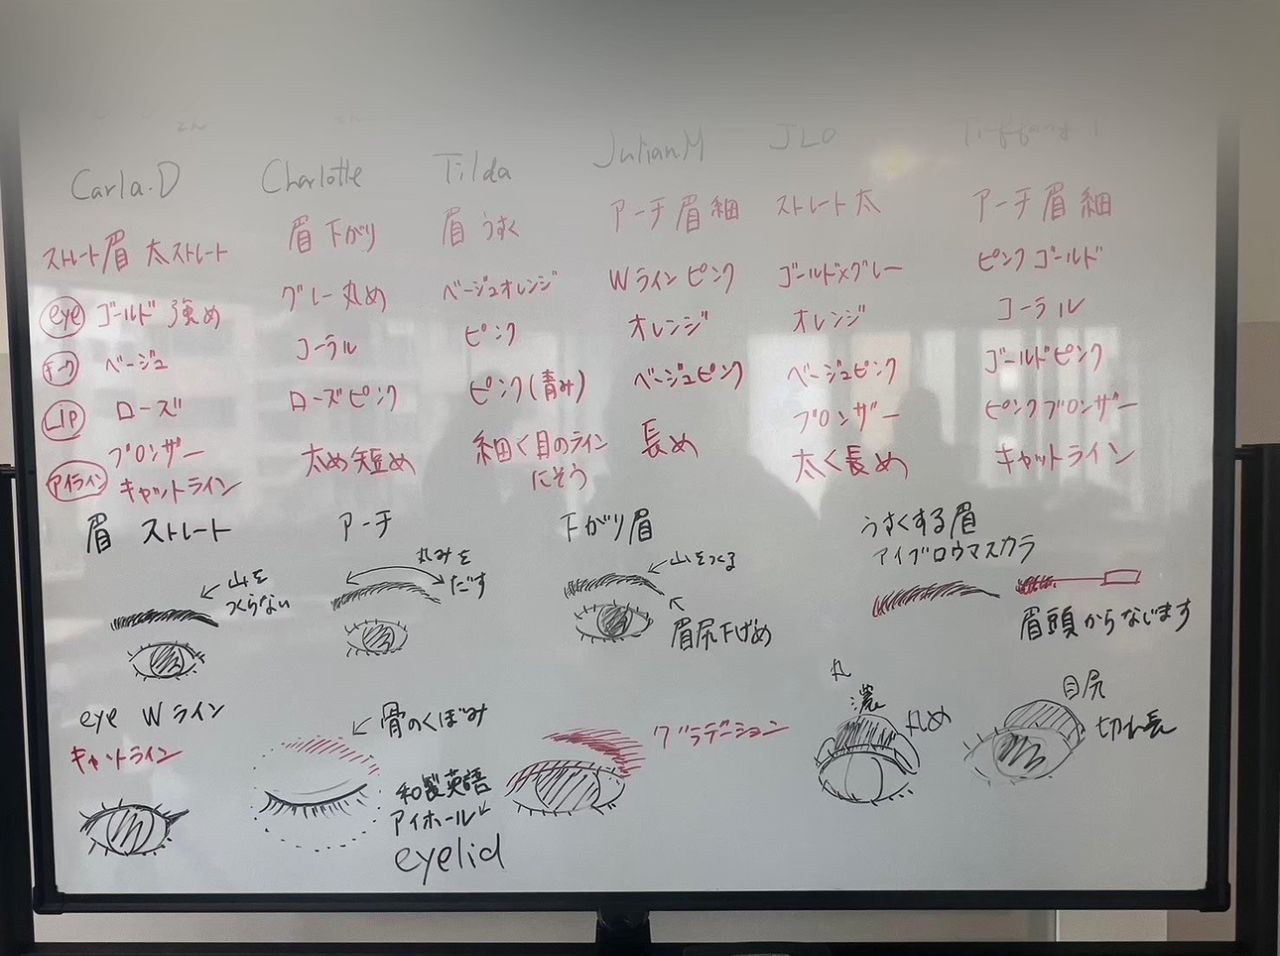 さん
さん
Carla.D
ストレート眉 太ストレート
eye ゴールド 強め
チーク ベージュ
LIP ローズ
ブロンザー
アイライン キャットライン
Charlotte
眉 下がり
グレー 丸め
コーラル
ローズピンク
太め短め
Tilda
眉 うすく
ベージュオレンジ
ピンク
ピンク(青み)
細く目のライン
にそう
JulianM
アーチ眉 細
Wライン ピンク
オレンジ
ベージュピンク
長め
JLO
ストレート太
ゴールド×グレー
オレンジ
ベージュピンク
ブロンザー
太く長め
Tiffany T
アーチ眉 細
ピンクゴールド
コーラル
ゴールドピンク
ピンクブロンザー
キャットライン
眉 ストレート
←山を
つくらない
アーチ
丸みを
だす
下がり眉
←山をつくる
眉尻下げめ
うすくする眉
アイブロウマスカラ
眉頭からなじます
eye Wライン
キャットライン
←骨のくぼみ
和製英語
アイホール
eyelid
グラデーション
丸
濃
丸め
目尻
切れ長